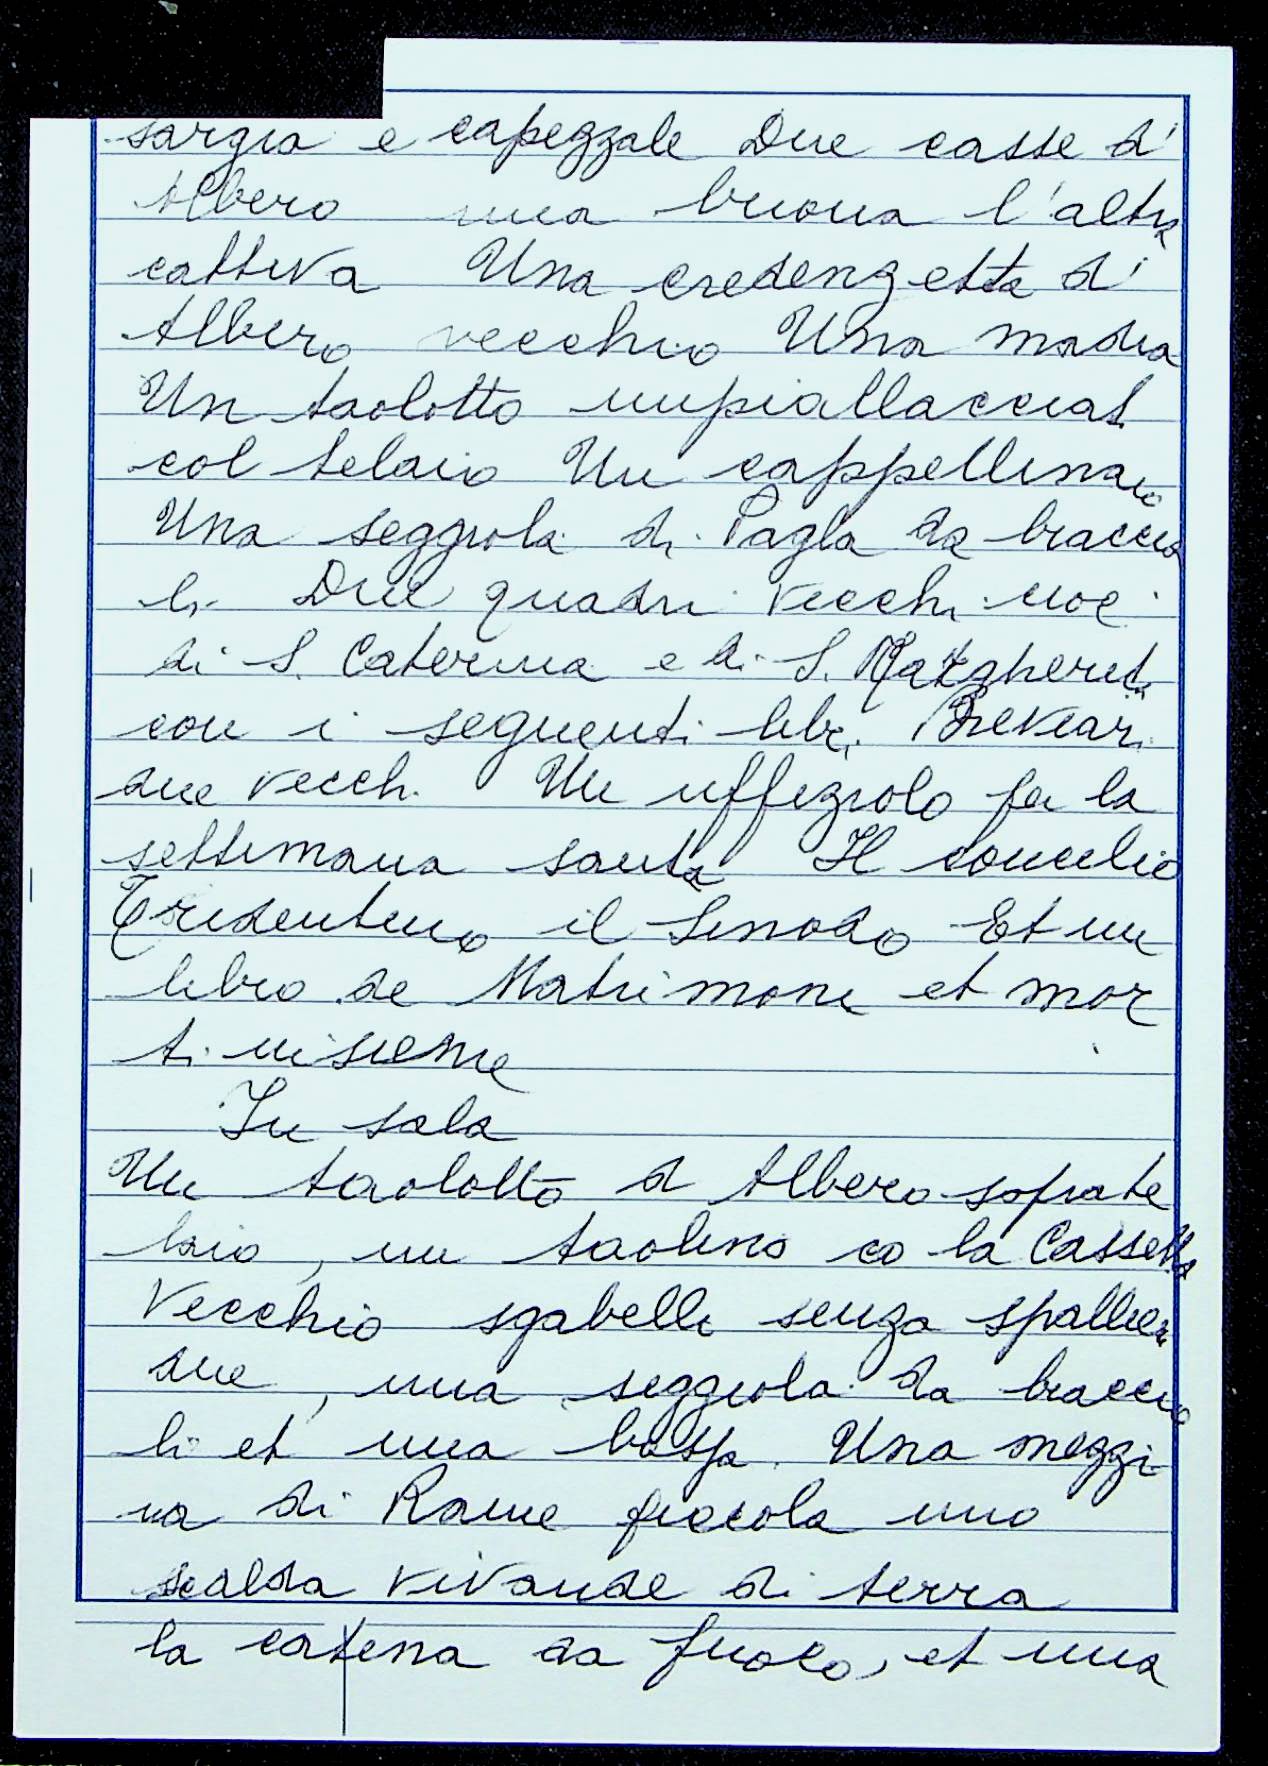 sargia e capezzale Due casse d'
Albero una buona l'altra
cattiva Una credenzetta d'
Albero vecchio Una madia
Un taolotto impiallacciat
col telaio Un cappellinaio
Una seggiola di Pagla da braccio
li Due quadri vecchi cioe
di S. Caterina e di S. Margherita
con i seguenti libri Breviari
due vecchi Un uffiziolo per la
settimana santa Il concilio
Tridentino il Sinodo Et un
libro de Matrimoni et mor
ti insieme
In sala
Un taolotto d Albero soprate
laio, un taolino co la Cassetta
Vecchio sgabelli senza spalliera
due, una seggiola da braccio
li et una bassa. Una mezzi
na di Rame piccola uno
scalda vivande di terra
la catena da fuoco, et una